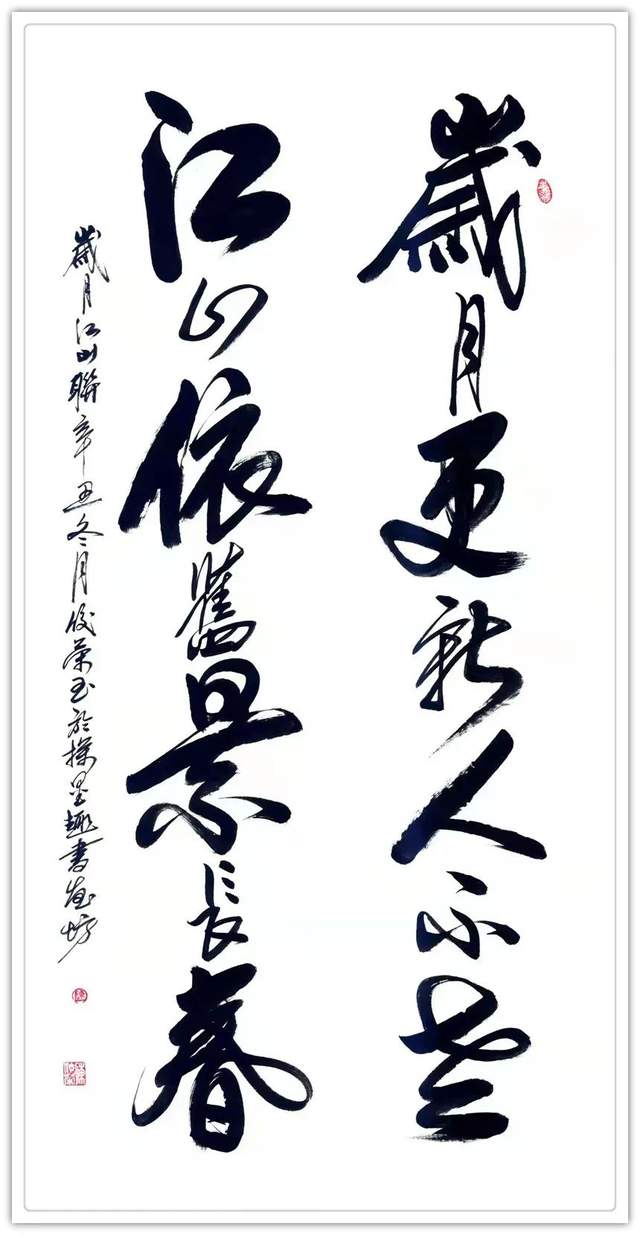 歲月更新人不老
江山依舊景長春
歲月江山聯辛丑冬月俊榮書於操墨趣書画坊